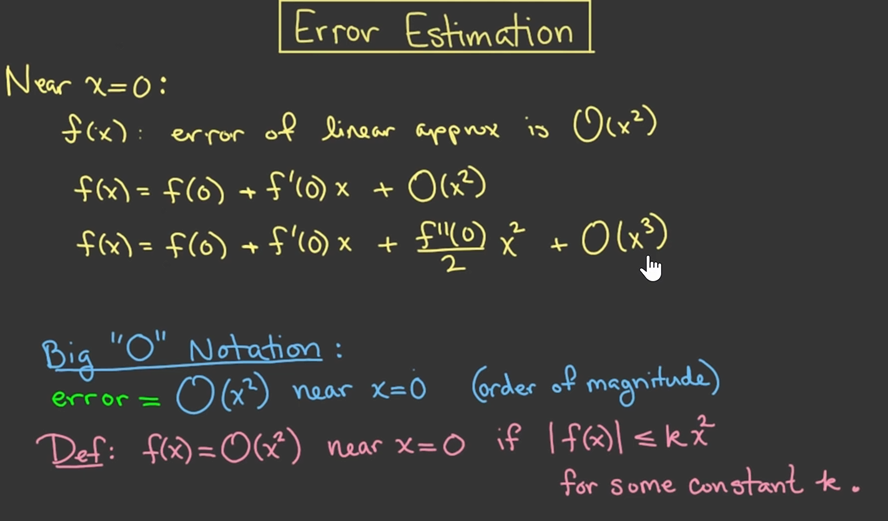 Error Estimation
Near x=0:
f(x): error of linear approx is O(x²)
f(x) = f(0) + f'(0) x + O(x²)
f(x) = f(0) + f'(0) x + f''(0)/2 x² + O(x³)
Big "O" Notation:
error = O(x²) near x=0 (order of magnitude)
Def: f(x) = O(x²) near x=0 if |f(x)| ≤ kx²
for some constant k.